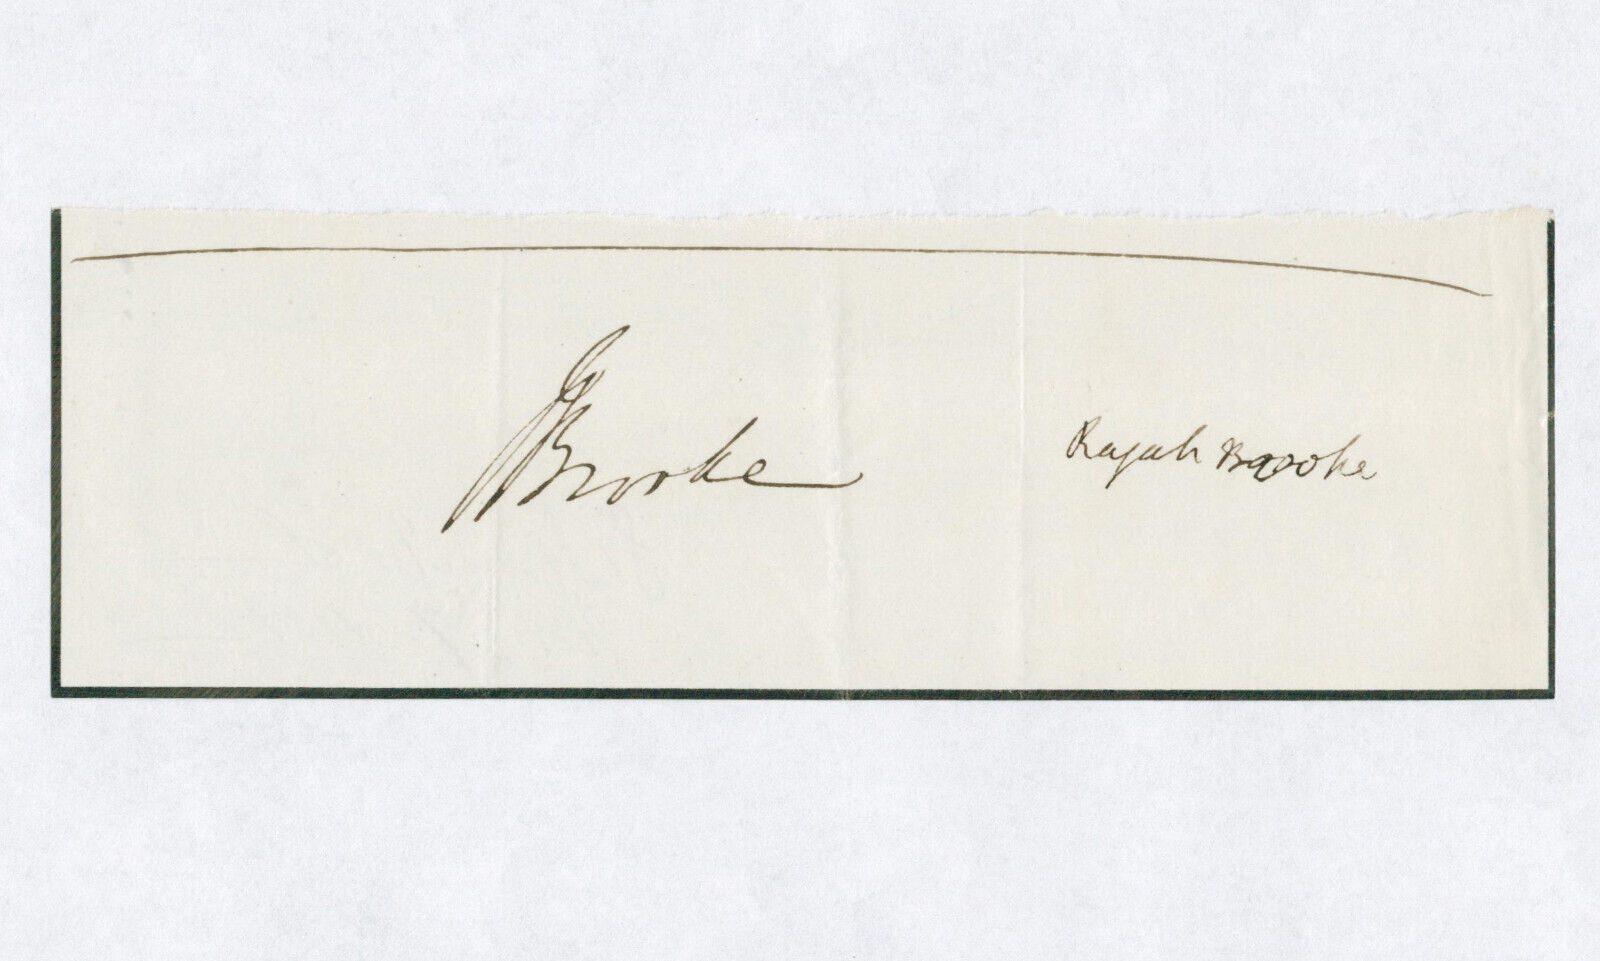 JBrooke
Rajah Brooke